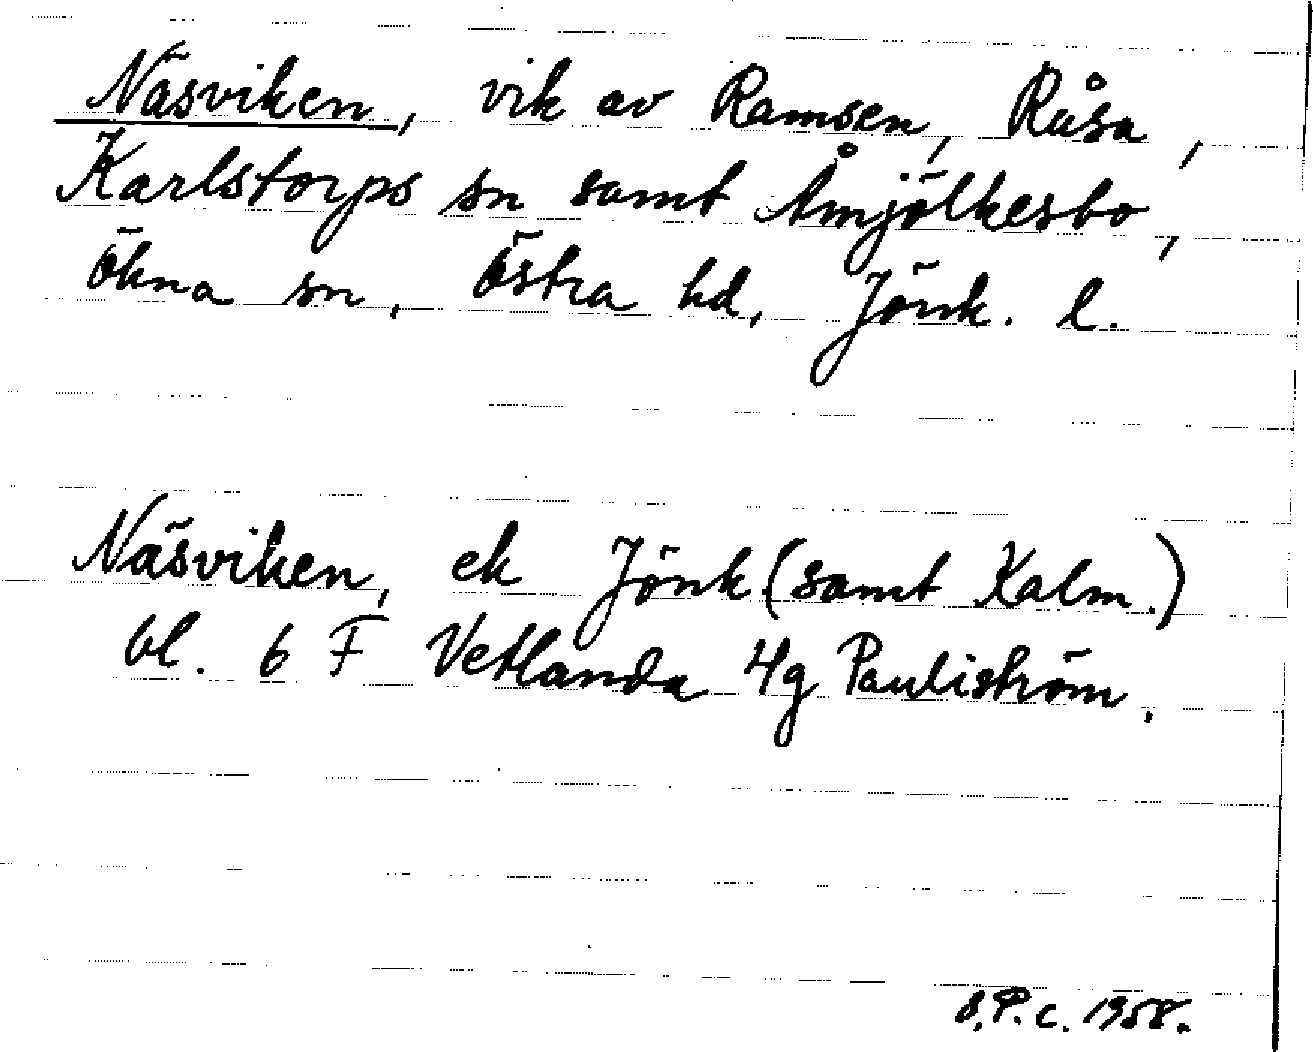 Näsviken, vik av Ramsen, Råsa,
Karlstorps sn samt Åmjölkesbo,
Ökna sn, Östra hd, Jönk. l.
Näsviken, ek Jönk (samt Kalm.)
bl. 6 F Vetlanda 4g Pauliström.
S.P.C. 1958.